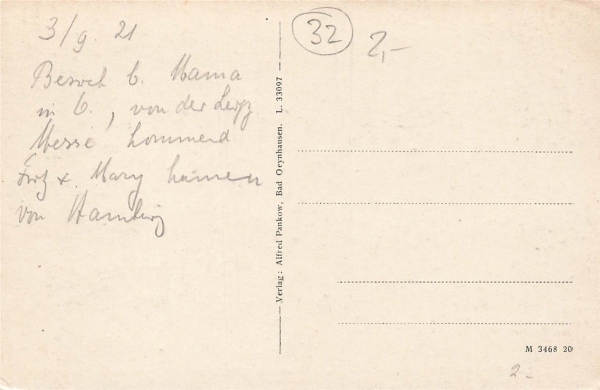 3/9. 21
Besuch b. Mama
in O., von der Leipz
Messe kommend
Fritz & Mary kamen
von Hamburg
32
2,-
Verlag: Alfred Pankow, Bad Oeynhausen. L. 33097
M 3468 20
2-